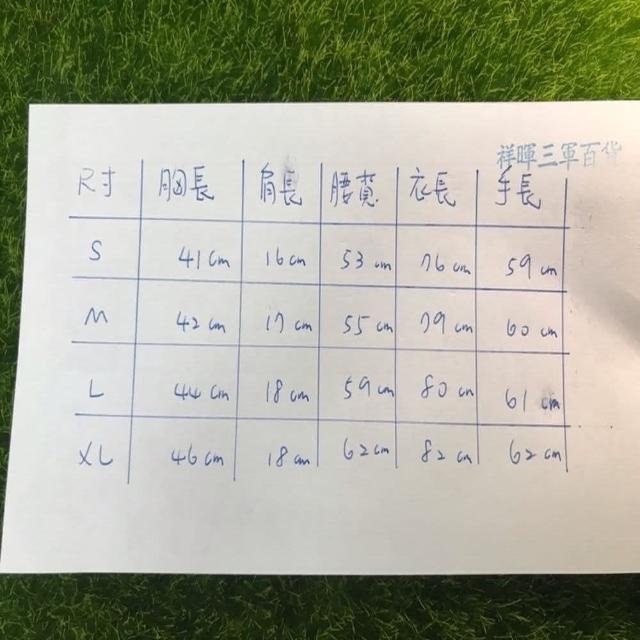 祥暉三軍百貨
尺寸 胸長 肩長 腰寬 衣長 手長
S 41cm 16cm 53cm 76cm 59cm
M 42cm 17cm 55cm 79cm 60cm
L 44cm 18cm 59cm 80cm 61cm
XL 46cm 18cm 62cm 82cm 62cm